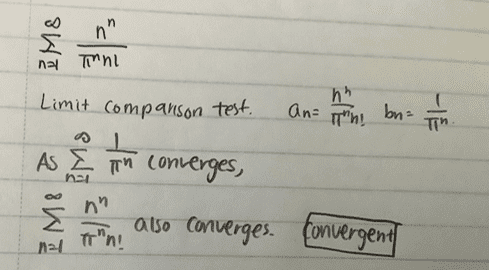 ∞
Σ nⁿ / πⁿn!
n=1
Limit comparison test. an = nⁿ / πⁿn! bn = 1 / πⁿ
As ∞ Σ n=1 1 / πⁿ converges,
∞ Σ n=1 nⁿ / πⁿn! also converges. Convergent